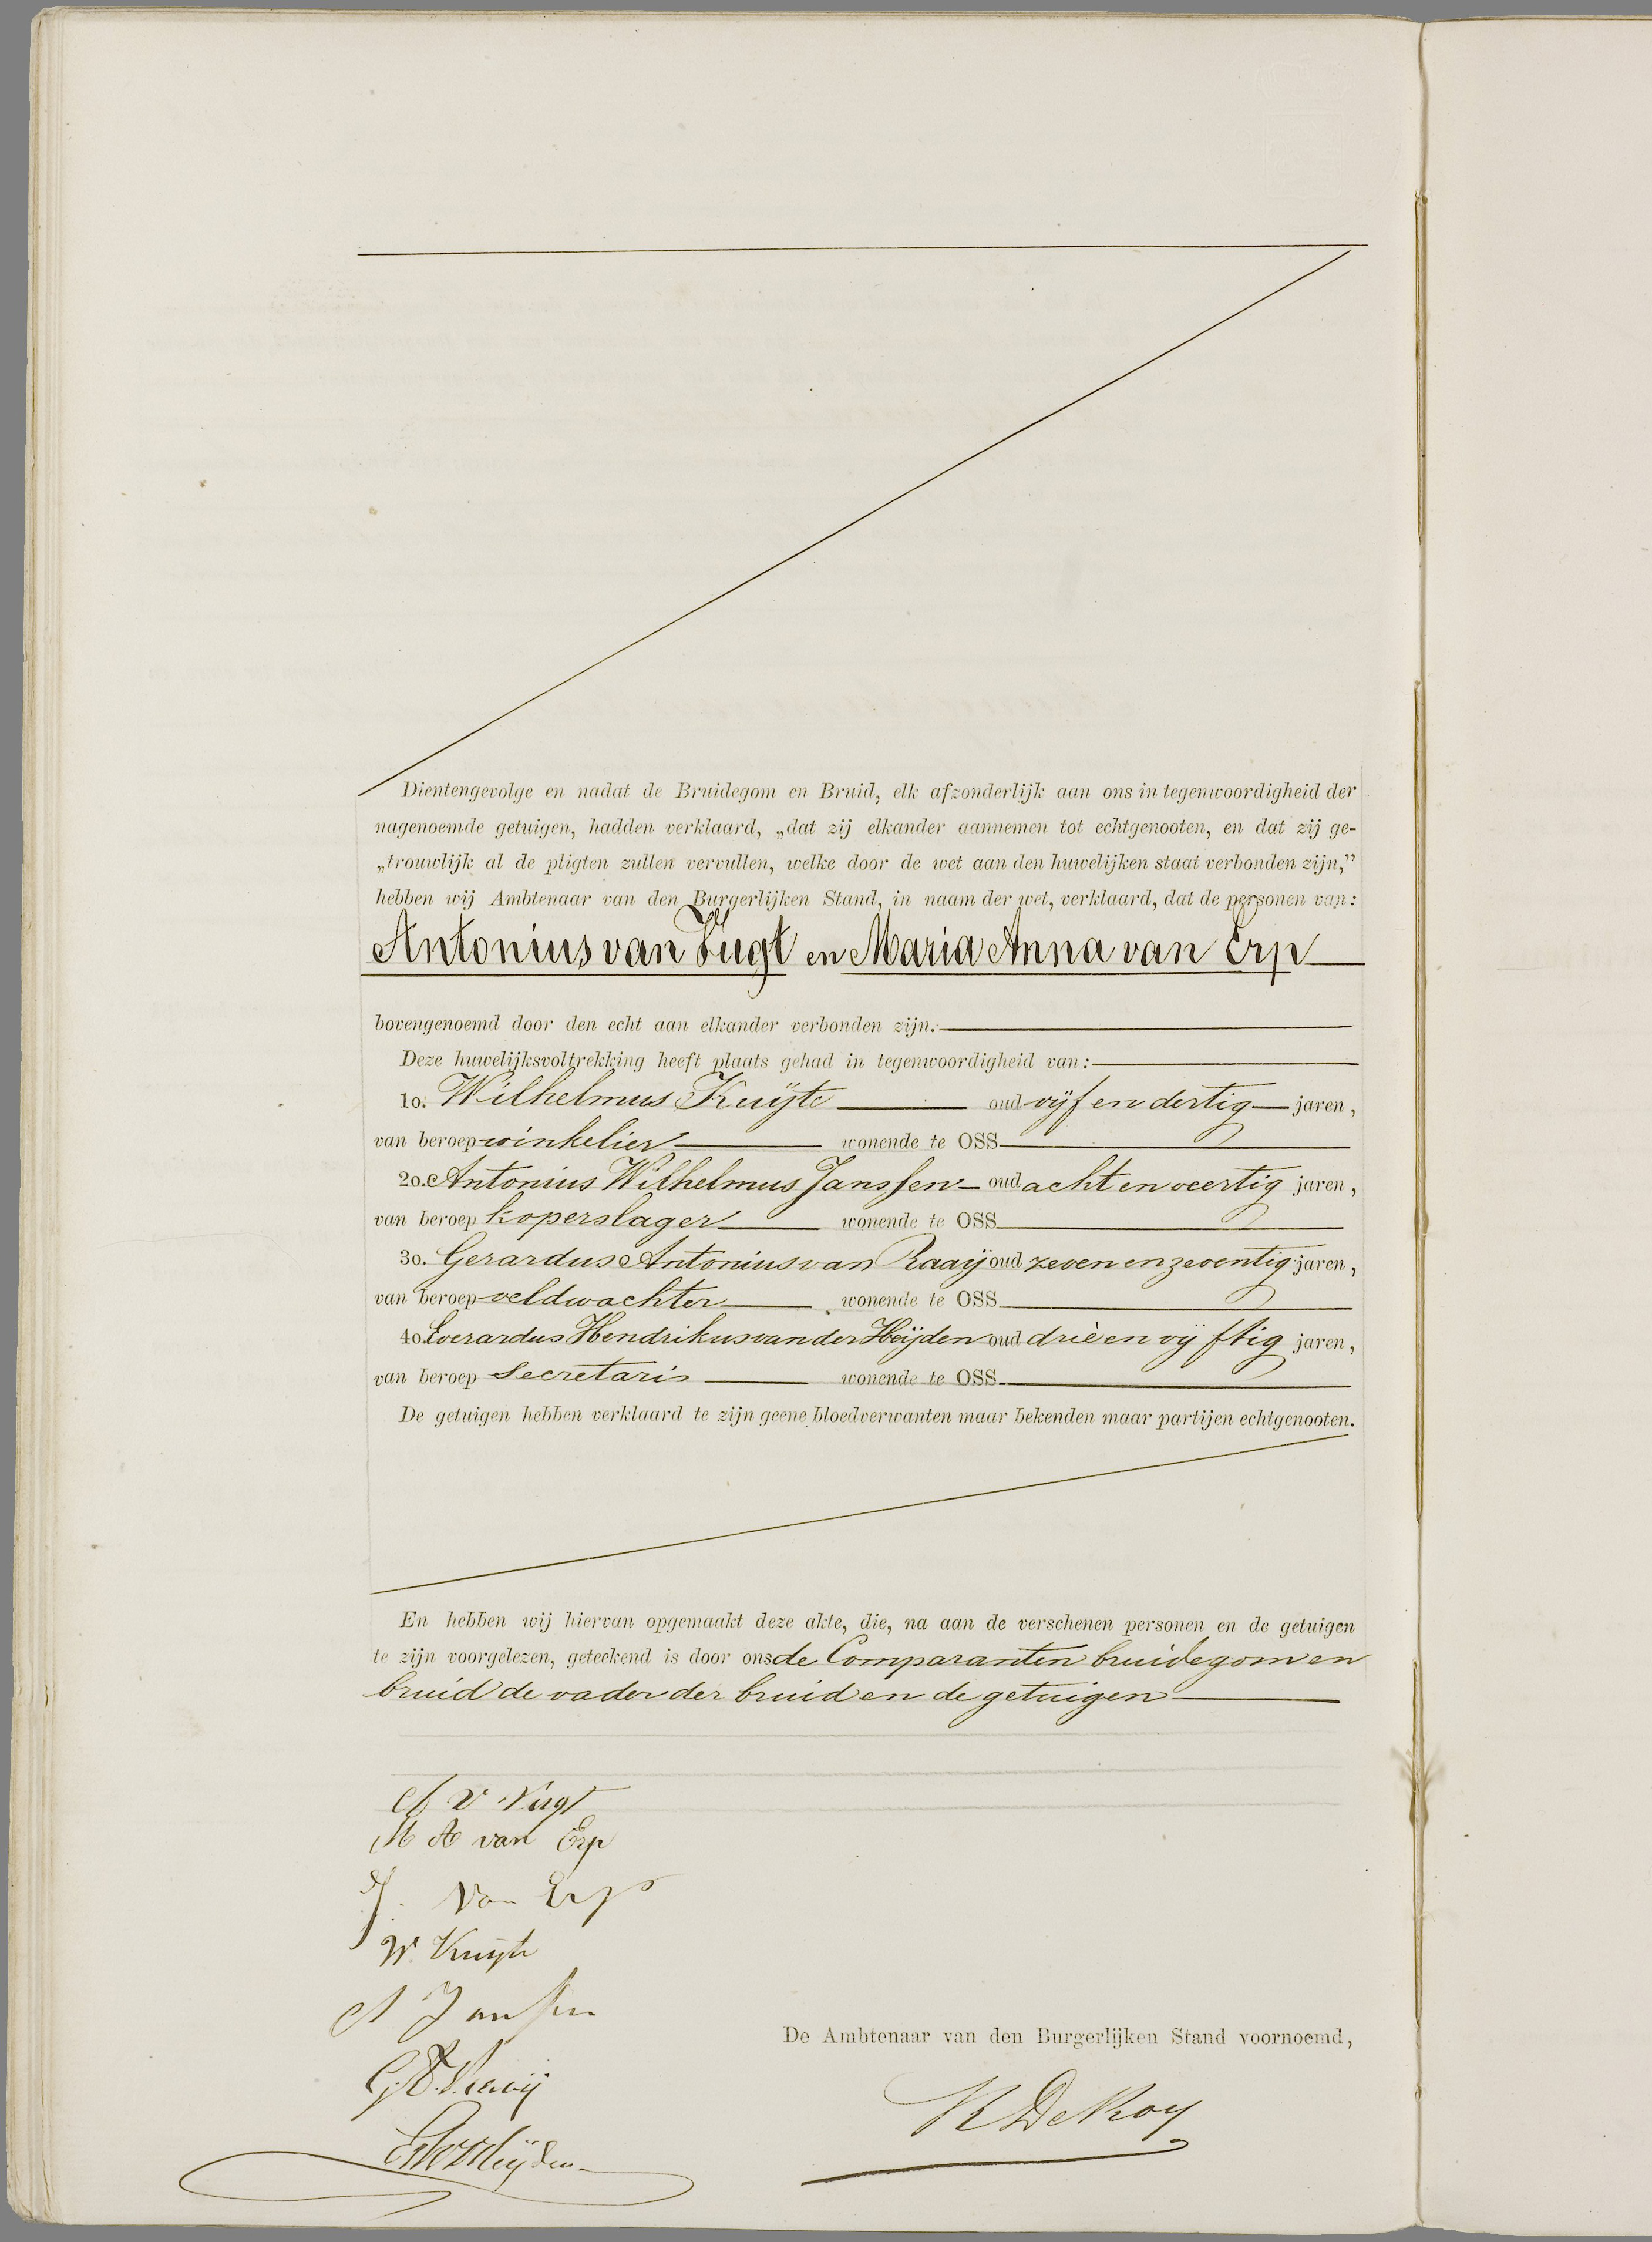 Dientengevolge en nadat de Bruidegom en Bruid, elk afzonderlijk aan ons in tegenwoordigheid der
nagenoemde getuigen, hadden verklaard, „dat zij elkander aannemen tot echtgenooten, en dat zij ge-
„trouwlijk al de pligten zullen vervullen, welke door de wet aan den huwelijken staat verbonden zijn,”
hebben wij Ambtenaar van den Burgerlijken Stand, in naam der wet, verklaard, dat de personen van:
Antonius van Vugt en Maria Anna van Erp
bovengenoemd door den echt aan elkander verbonden zijn.
Deze huwelijksvoltrekking heeft plaats gehad in tegenwoordigheid van:
1o. Wilhelmus Kuijte oud vijf en dertig jaren,
van beroep winkelier wonende te OSS
2o. Antonius Wilhelmus Janssen oud acht en veertig jaren,
van beroep koperslager wonende te OSS
3o. Gerardus Antonius van Raaij oud zeven en zeventig jaren,
van beroep veldwachter wonende te OSS
4o. Everardus Hendrikus van der Heijden oud drie en vijftig jaren,
van beroep Secretaris wonende te OSS
De getuigen hebben verklaard te zijn geene bloedverwanten maar bekenden maar partijen echtgenooten.
En hebben wij hiervan opgemaakt deze akte, die, na aan de verschenen personen en de getuigen
te zijn voorgelezen, geteekend is door ons de Comparanten bruidegom en
bruid de vader der bruid en de getuigen
A v Vugt
M A van Erp
J. van Erp
W. Kuijte
A Janssen
G. A. V. Raaij
EHvdHeijden
De Ambtenaar van den Burgerlijken Stand voornoemd,
De Roy